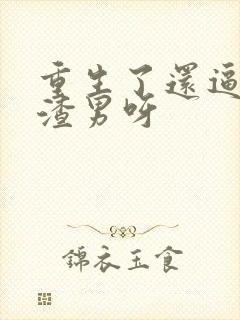 重生了還逼
渣男呀
錦衣玉食